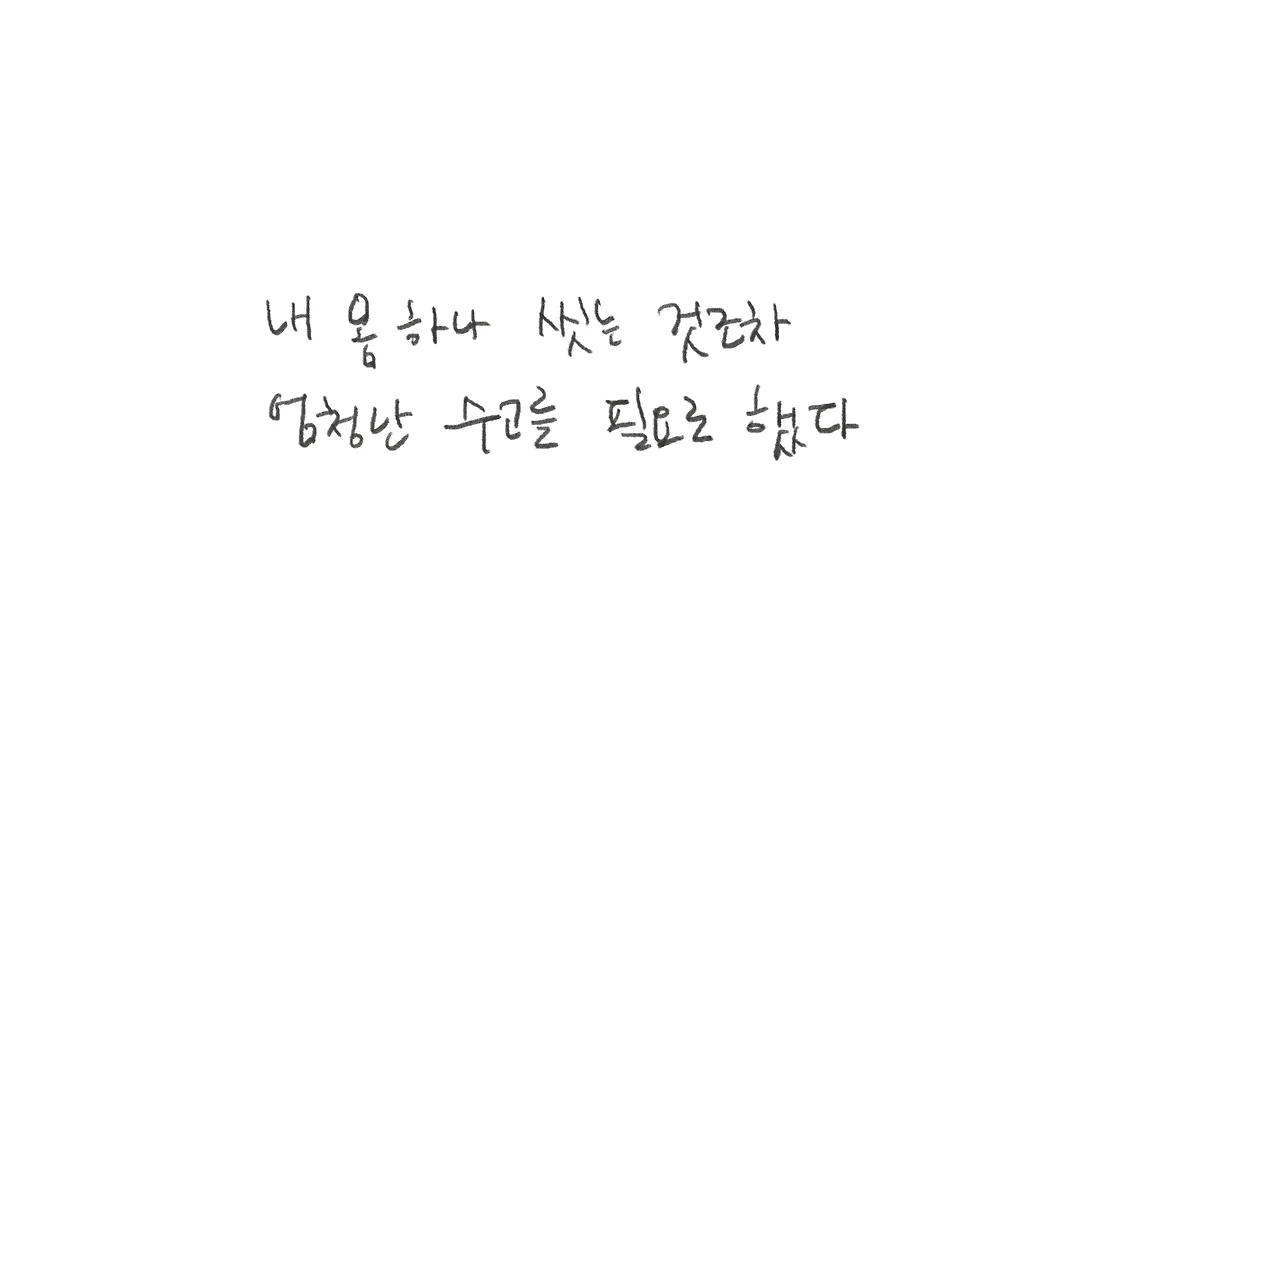 내 몸 하나 씻는 것조차
엄청난 수고를 필요로 했다